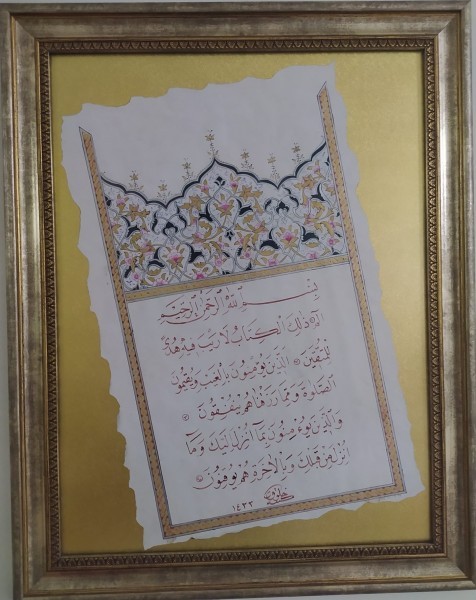 بِسْمِ اللّٰهِ الرَّحْمٰنِ الرَّحِيْمِ
الٓمٓ ۝ ذٰلِكَ الْكِتَابُ لَا رَيْبَ فِيهِ هُدًى
لِلْمُتَّقِينَ ۝ الَّذِينَ يُؤْمِنُونَ بِالْغَيْبِ وَيُقِيمُونَ
الصَّلٰوةَ وَمِمَّا رَزَقْنَاهُمْ يُنْفِقُونَ ۝
وَالَّذِينَ يُؤْمِنُونَ بِمَا أُنْزِلَ إِلَيْكَ وَمَا
أُنْزِلَ مِنْ قَبْلِكَ وَبِالْاٰخِرَةِ هُمْ يُوقِنُونَ ۝
١٤٣٣